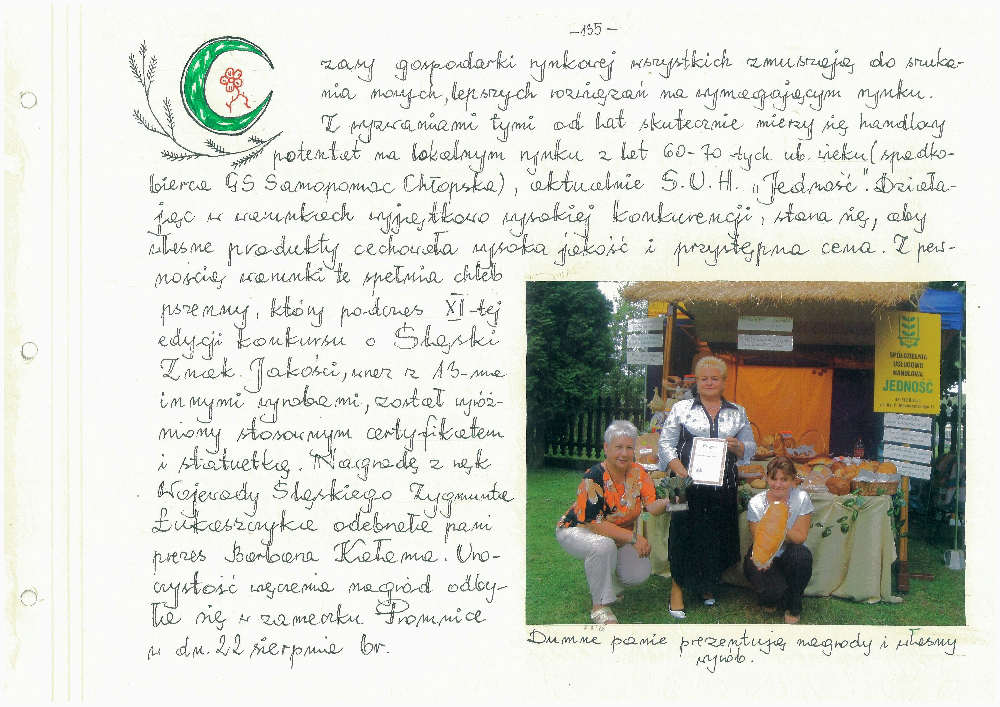 -135-
Czasy gospodarki rynkowej wszystkich zmuszają do szuka-
nia nowych, lepszych rozwiązań na wymagającym rynku.
Z wyzwaniami tymi od lat skutecznie mierzy się handlowy
potentat na lokalnym rynku z lat 60-70-tych ub. wieku (spadko-
bierca GS Samopomoc Chłopska), aktualnie S.U.H. „Jedność". Działa-
jąc w warunkach wyjątkowo wysokiej konkurencji, stara się, aby
własne produkty cechowała wysoka jakość i przystępna cena. Z pew-
nością warunki te spełnia chleb
pszenny, który podczas XI-tej
edycji konkursu o Śląski
Znak Jakości, wraz z 13-ma
innymi wyrobami, został wyróż-
niony stosownym certyfikatem
i statuetką. Nagrodę z rąk
Wojewody Śląskiego Zygmunta
Łukaszczyka odebrała pani
prezes Barbara Kałama. Uro-
czystość wręczenia nagród odby-
ła się w zameczku Promnice
w dn. 22 sierpnia br.
SPÓŁDZIELNIA
USŁUGOWO
HANDLOWA
JEDNOŚĆ
Dumne panie prezentują nagrody i własny
wyrób.